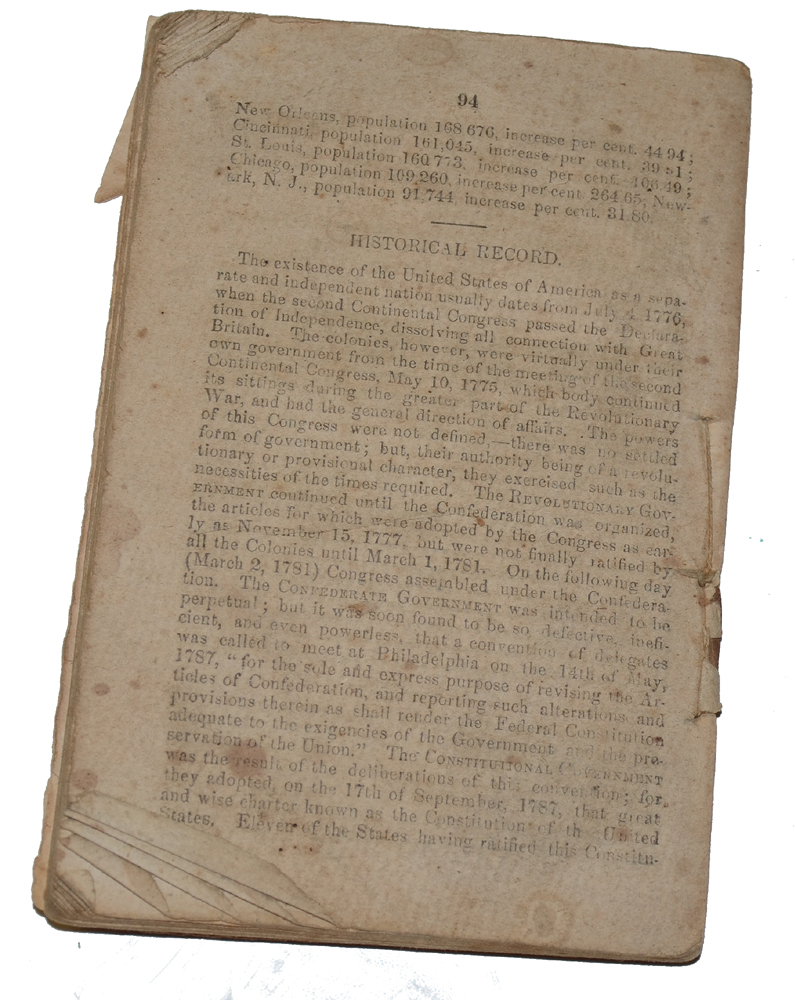 94
New Orleans, population 168 676, increase per cent. 44 94;
Cincinnati, population 161,045, increase per cent. 39 51;
St. Louis, population 160 773, increase per cent. 106.49;
Chicago, population 109,260, increase per cent 264 65; New-
ark, N. J., population 91,744 increase per cent. 31.80.
HISTORICAL RECORD.
The existence of the United States of America as a sepa-
rate and independent nation usually dates from July 4 1776,
when the second Continental Congress passed the Declara-
tion of Independence, dissolving all connection with Great
Britain. The colonies, however, were virtually under their
own government from the time of the meeting of the second
Continental Congress, May 10, 1775, which body continued
its sittings during the greater part of the Revolutionary
War, and had the general direction of affairs. The powers
of this Congress were not defined,—there was no settled
form of government; but, their authority being of a revolu-
tionary or provisional character, they exercised such as the
necessities of the times required. The REVOLUTIONARY GOV-
ERNMENT continued until the Confederation was organized,
the articles for which were adopted by the Congress as ear-
ly as November 15, 1777, but were not finally ratified by
all the Colonies until March 1, 1781. On the following day
(March 2, 1781) Congress assembled under the Confedera-
tion. The CONFEDERATE GOVERNMENT was intended to be
perpetual; but it was soon found to be so defective, ineffi-
cient, and even powerless, that a convention of delegates
was called to meet at Philadelphia on the 14th of May,
1787, "for the sole and express purpose of revising the Ar-
ticles of Confederation, and reporting such alterations and
provisions therein as shall render the Federal Constitution
adequate to the exigencies of the Government and the pre-
servation of the Union." The CONSTITUTIONAL GOVERNMENT
was the result of the deliberations of this convention; for,
they adopted, on the 17th of September, 1787, that great
and wise charter known as the Constitution of the United
States. Eleven of the States having ratified this Constitu-